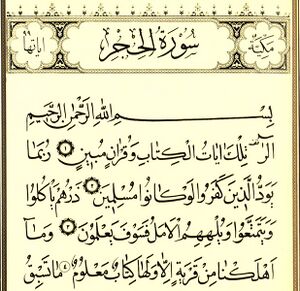 مَكِّيَّة سُورَةُ الْحِجْرِ اٰيَاتُهَا
بِسْمِ اللّٰهِ الرَّحْمٰنِ الرَّحِيمِ
الٓرٰ تِلْكَ اٰيَاتُ الْكِتَابِ وَقُرْاٰنٍ مُبِينٍ ١ رُبَمَا
يَوَدُّ الَّذِينَ كَفَرُوا لَوْ كَانُوا مُسْلِمِينَ ٢ ذَرْهُمْ يَأْكُلُوا
وَيَتَمَتَّعُوا وَيُلْهِهِمُ الْاَمَلُ فَسَوْفَ يَعْلَمُونَ ٣ وَمَٓا
اَهْلَكْنَا مِنْ قَرْيَةٍ اِلَّا وَلَهَا كِتَابٌ مَعْلُومٌ ٤ مَا تَسْبِقُ